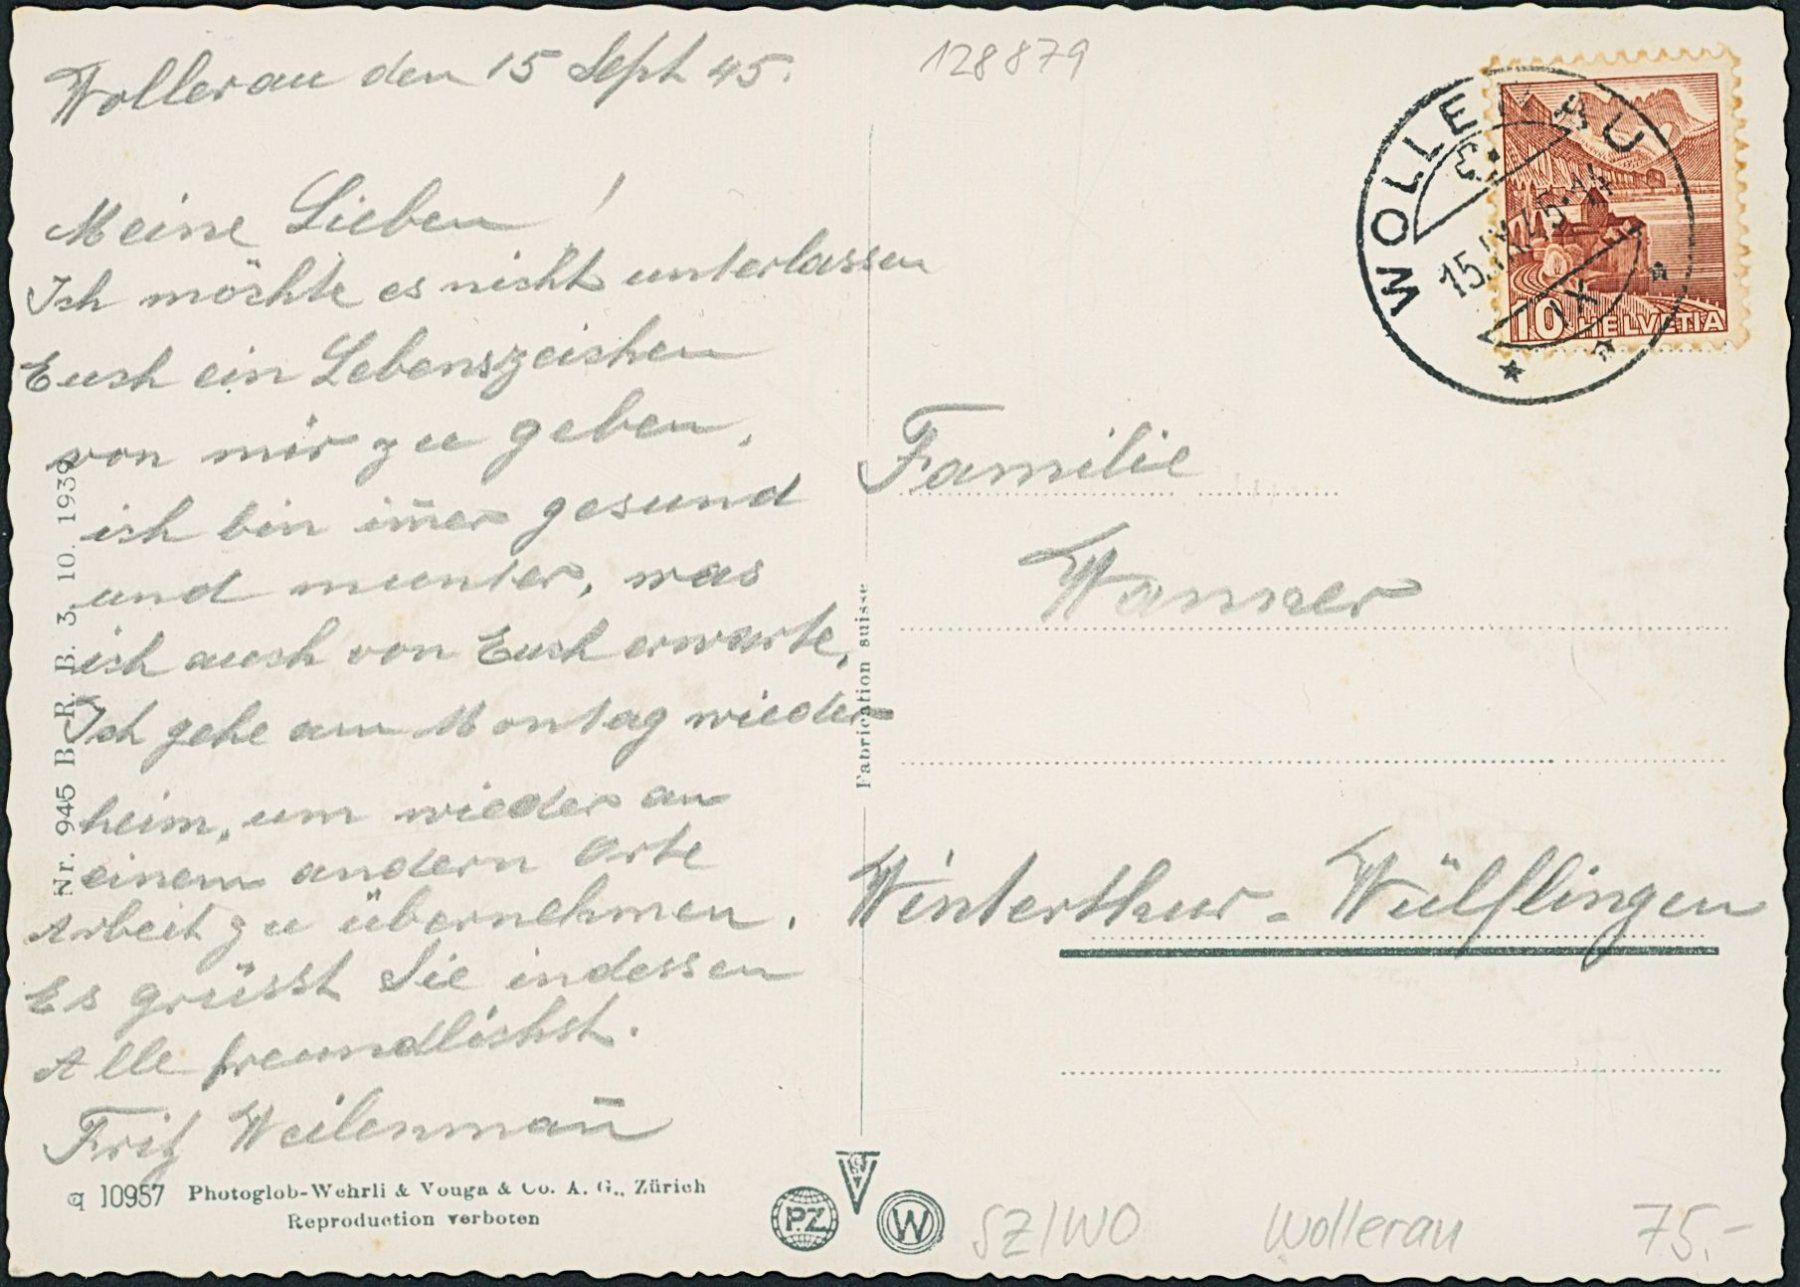 Wollerau den 15 Sept 45.
Meine Lieben!
Ich möchte es nicht unterlassen
Euch ein Lebenszeichen
von mir zu geben,
ich bin im̅er gesund
und munter, was
ich auch von Euch erwarte,
Ich gehe am Montag wieder
heim, um wieder an
einem andern Orte
Arbeit zu übernehmen.
Es grüsst Sie indessen
Alle freundlichst.
Fritz Weilenman̅
q 10957 Photoglob-Wehrli & Vouga & Co. A. G., Zürich
Reproduction verboten
Nr. 945 B. R. B. 3. 10. 1939
Fabrication suisse
PZ
W
128879
WOLLERAU
15.IX.45.14
IX
10 HELVETIA
Familie
Wanner
Winterthur - Wülflingen
SZ/WO
Wollerau
75.-